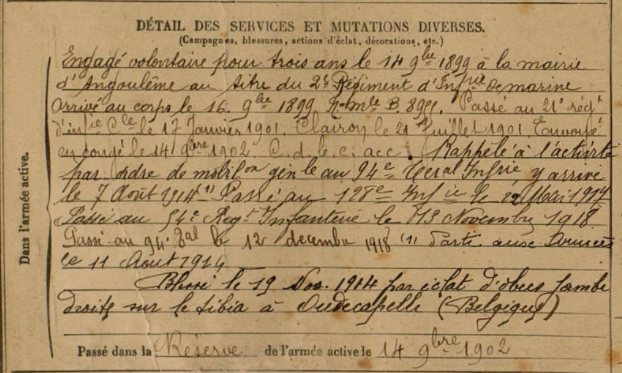 DÉTAIL DES SERVICES ET MUTATIONS DIVERSES.
(Campagnes, blessures, actions d'éclat, décorations, etc.)
Engagé volontaire pour trois ans le 14 9bre 1899 à la mairie
d'Angoulême au titre du 2e Régiment d'Infrie de marine
arrivé au corps le 16. 9bre 1899 No mle B. Passé au 21e régt
d'infie Cle le 17 Janvier 1901. Clairon le 21 Juillet 1901. Envoyé
en congé le 14 9bre 1902 C. d. e. c. acc. Rappelé à l'activité
par ordre de mobilon génle au 94e Teral Infrie y arrive
le 7 Août 1914 (1) Passé au 128e Infie le Mai 1917
Passé au Regt Infanterie le 18 Novembre 1918
Passé au 94e Tal le 12 decembre 1918 (1) Parti aux Armées
le 11 Août 1914
Blessé le 19 Nov. 1914 par éclat d'obus jambe
droite sur le tibia à Oudecapelle (Belgique)
Dans l'armée active.
Passé dans la Réserve de l'armée active le 14 9bre 1902